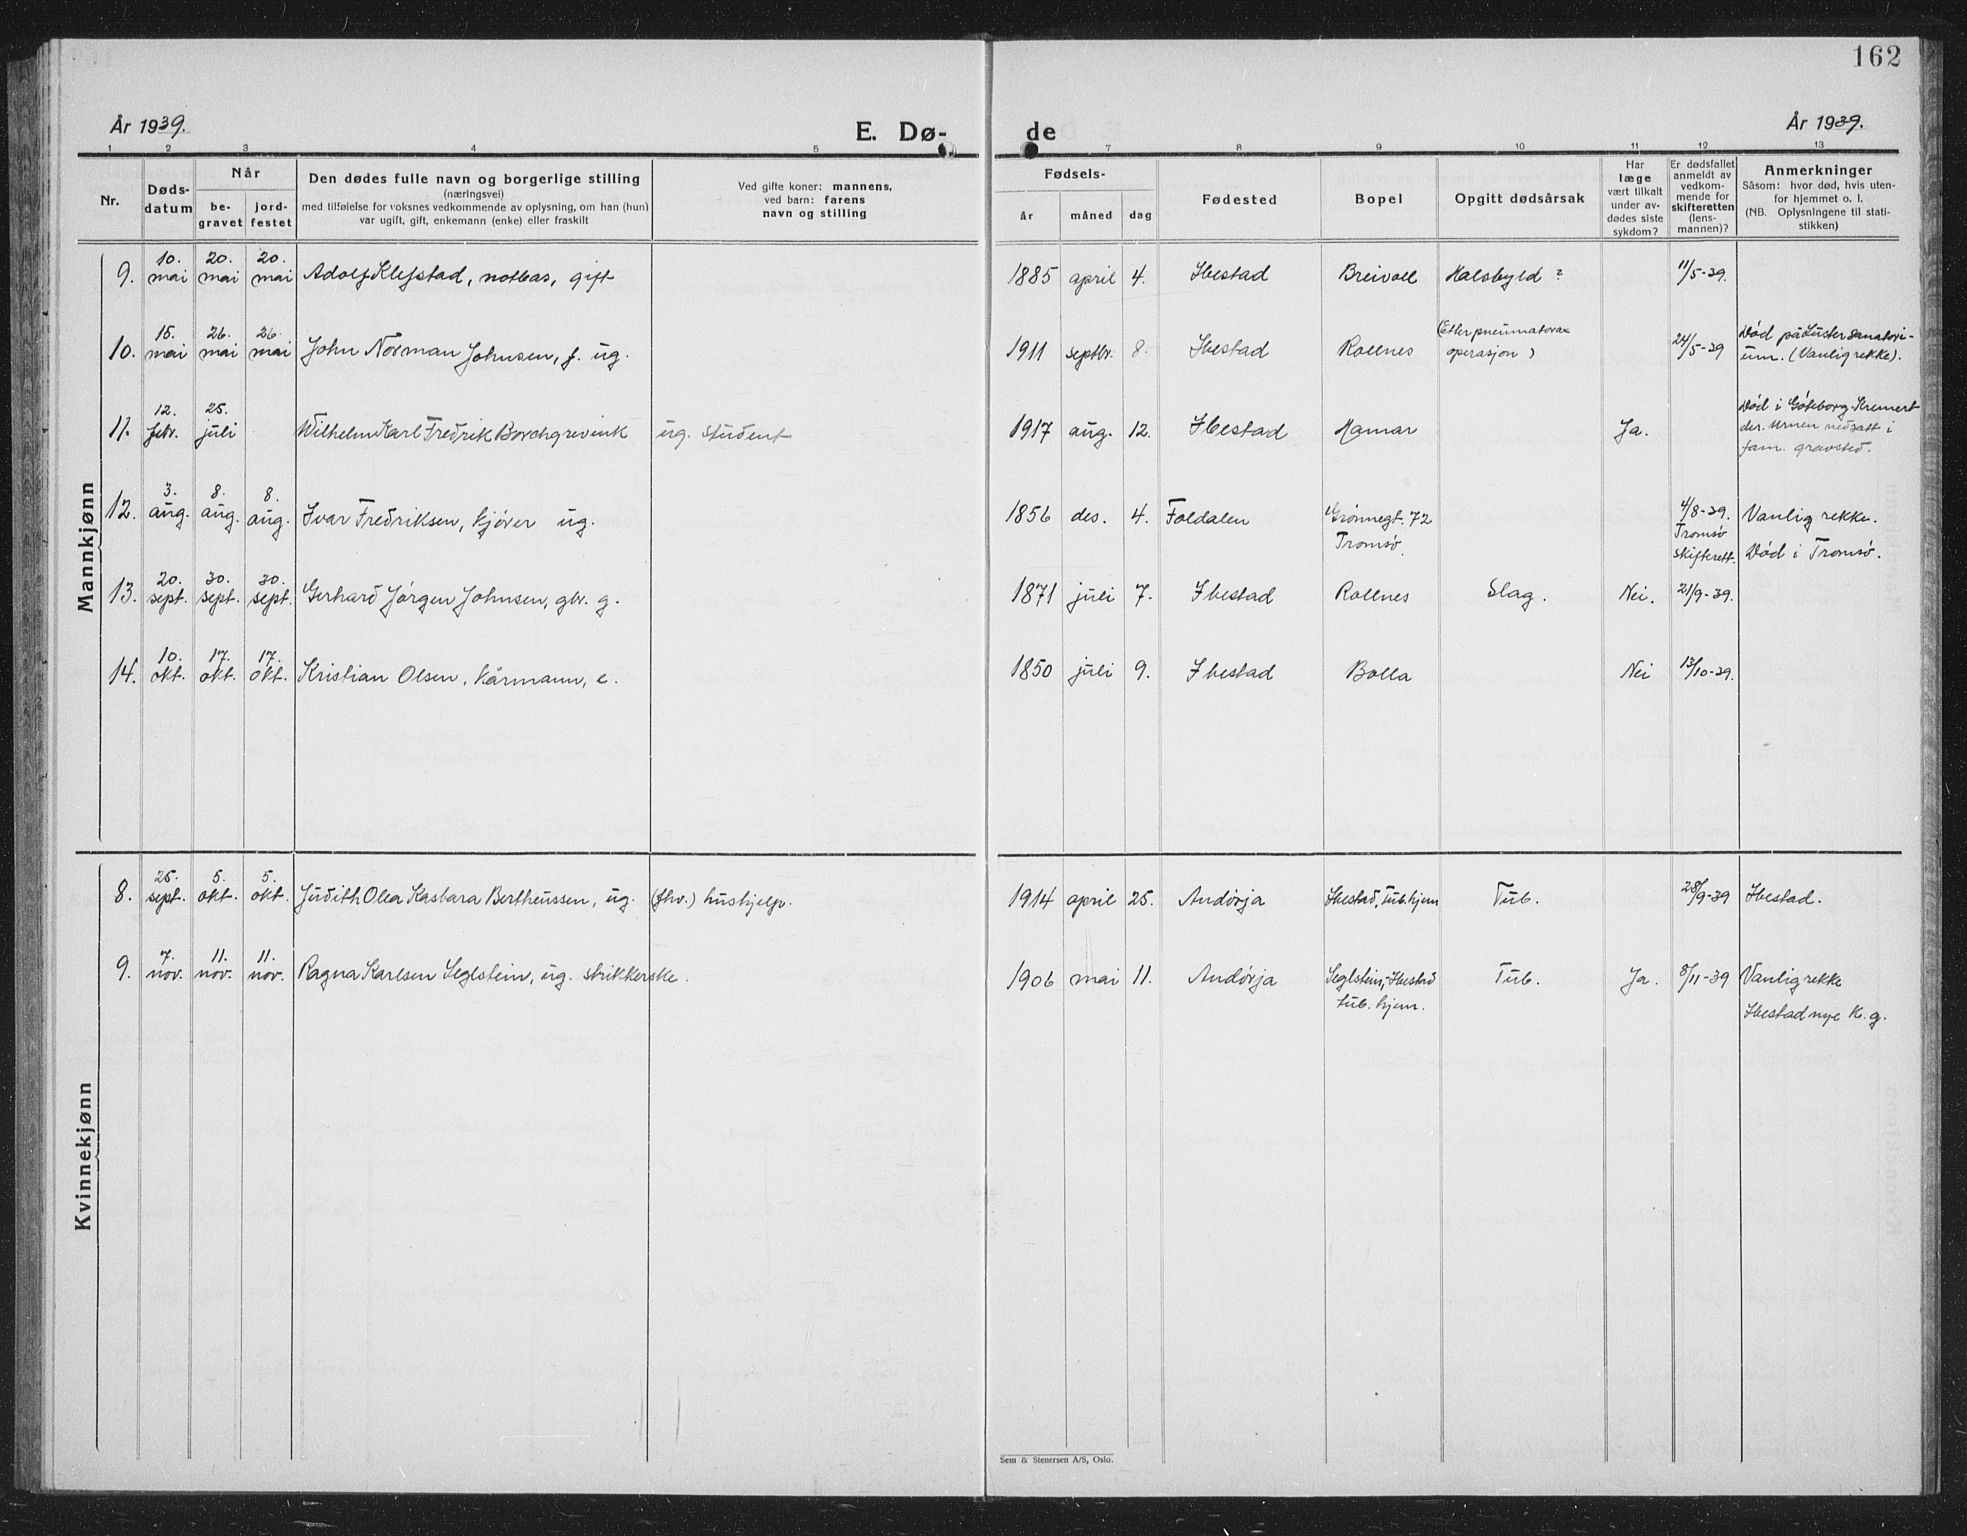 162
År 1939.
E. Dø-
de
År 1939.
1 2 3 4 5 7 8 9 10 11 12 13
Nr.
Døds-
datum
Når
be-
gravet
jord-
festet
Den dødes fulle navn og borgerlige stilling
(næringsvei)
med tilføielse for voksnes vedkommende av oplysning, om han (hun)
var ugift, gift, enkemann (enke) eller fraskilt
Ved gifte koner: mannens,
ved barn: farens
navn og stilling
Fødsels-
år måned dag
Fødested
Bopel
Opgitt dødsårsak
Har
læge
vært tilkalt
under av-
dødes siste
sykdom?
Er dødsfallet
anmeldt av
vedkom-
mende for
skifteretten
(lens-
mannen)?
Anmerkninger
Såsom: hvor død, hvis uten-
for hjemmet o. l.
(NB. Oplysningene til stati-
stikken)
Mannkjønn
9. 10. mai 20. mai 20. mai Adolf Klefstad, notbas, gift 1885 april 4. Ibestad Breivoll Halsbyld ? 11/5-39.
10. 15. mai 26. mai 26. mai John Norman Johnsen, f. ug. 1911 septbr. 8. Ibestad Rollnes (Etter pneumatorax
operasjon) 24/5-39 Død på Luster sanatori-
um. (Vanlig rekke).
11. 12. febr. 25. juli Wilhelm Karl Fredrik Borchgrevink ug. student 1917 aug. 12. Ibestad Hamar Ja. Død i Göteborg. Kremert
der. Urnen nedsatt i
fam. gravsted.
12. 3. aug. 8. aug. 8. aug. Ivar Fredriksen, kjører ug. 1856 des. 4. Foldalen Grønnegt. 72
Tromsø. 4/8-39.
Tromsø
skifterett. Vanlig rekke.
Død i Tromsø.
13. 20. sept. 30. sept. 30. sept. Gerhard Jørgen Johnsen, gbr. g. 1871 juli 7. Ibestad Rollnes Slag. Nei. 21/9-39.
14. 10. okt. 17. okt. 17. okt. Kristian Olsen, kårmann, e. 1850 juli 9. Ibestad Bolla Nei 13/10-39.
Kvinnekjønn
8. 25. sept. 5. okt. 5. okt. Judith Olea Kasbara Bertheussen, ug. (fhv.) hushjelp. 1914 april 25. Andørja Ibestad, Tub.hjem Tub. 28/9-39 Ibestad.
9. 7. nov. 11. nov. 11. nov. Ragna Karlsen Seglstein, ug. strikkerske. 1906 mai 11. Andørja Seglstein,-Ibestad
tub. hjem. Tub. Ja. 8/11-39 Vanlig rekke
Ibestad nye k.g.
Sem & Stenersen A/S, Oslo.